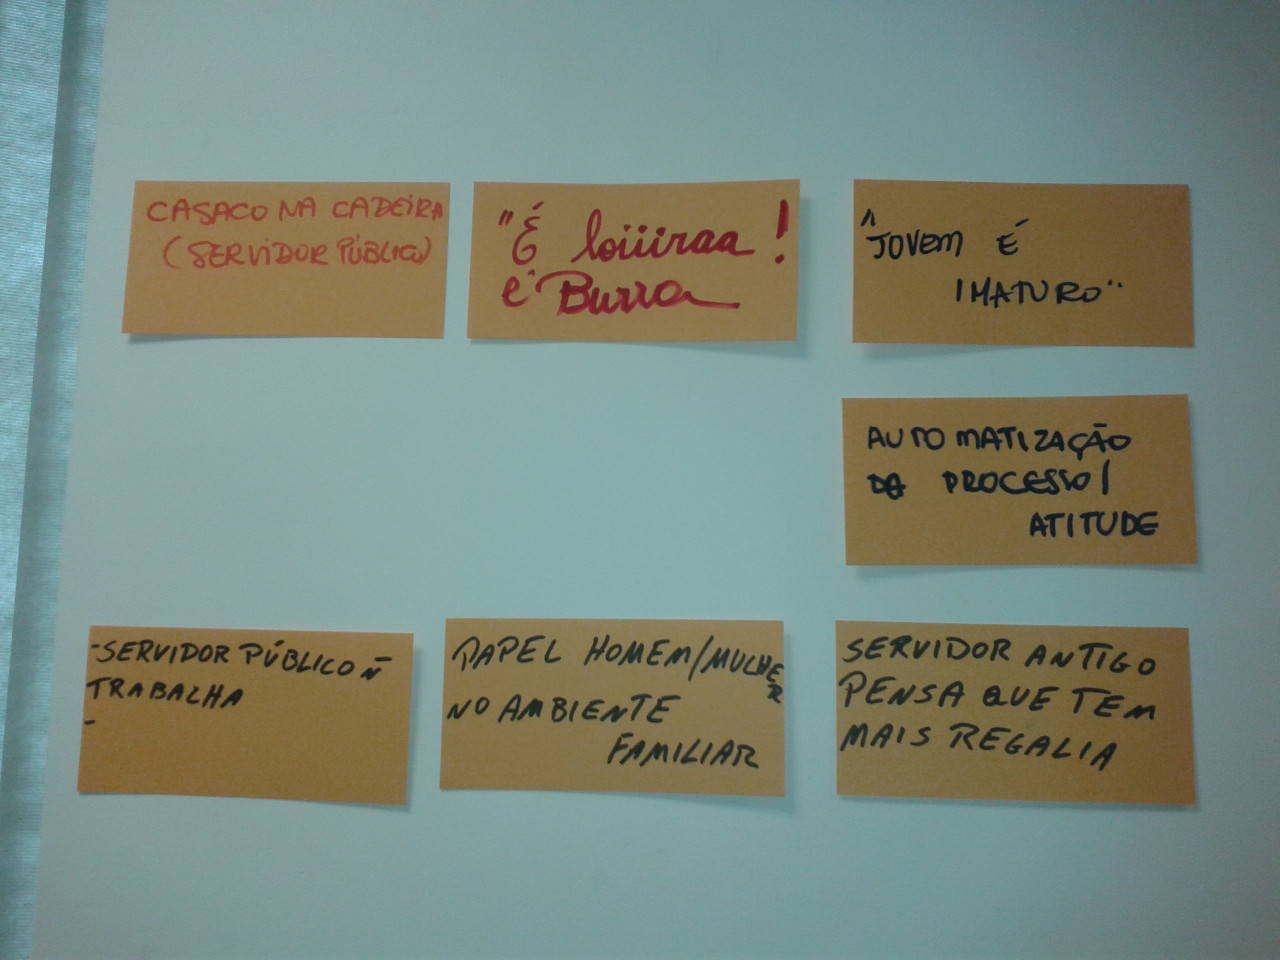 CASACO NA CADEIRA
(SERVIDOR PÚBLICO)
"É loiiiraa!
é" Burra
"JOVEM É
IMATURO"
AUTOMATIZAÇÃO
DE PROCESSO/
ATITUDE
-SERVIDOR PÚBLICO Ñ
TRABALHA
-
PAPEL HOMEM/MULHER
NO AMBIENTE
FAMILIAR
SERVIDOR ANTIGO
PENSA QUE TEM
MAIS REGALIA